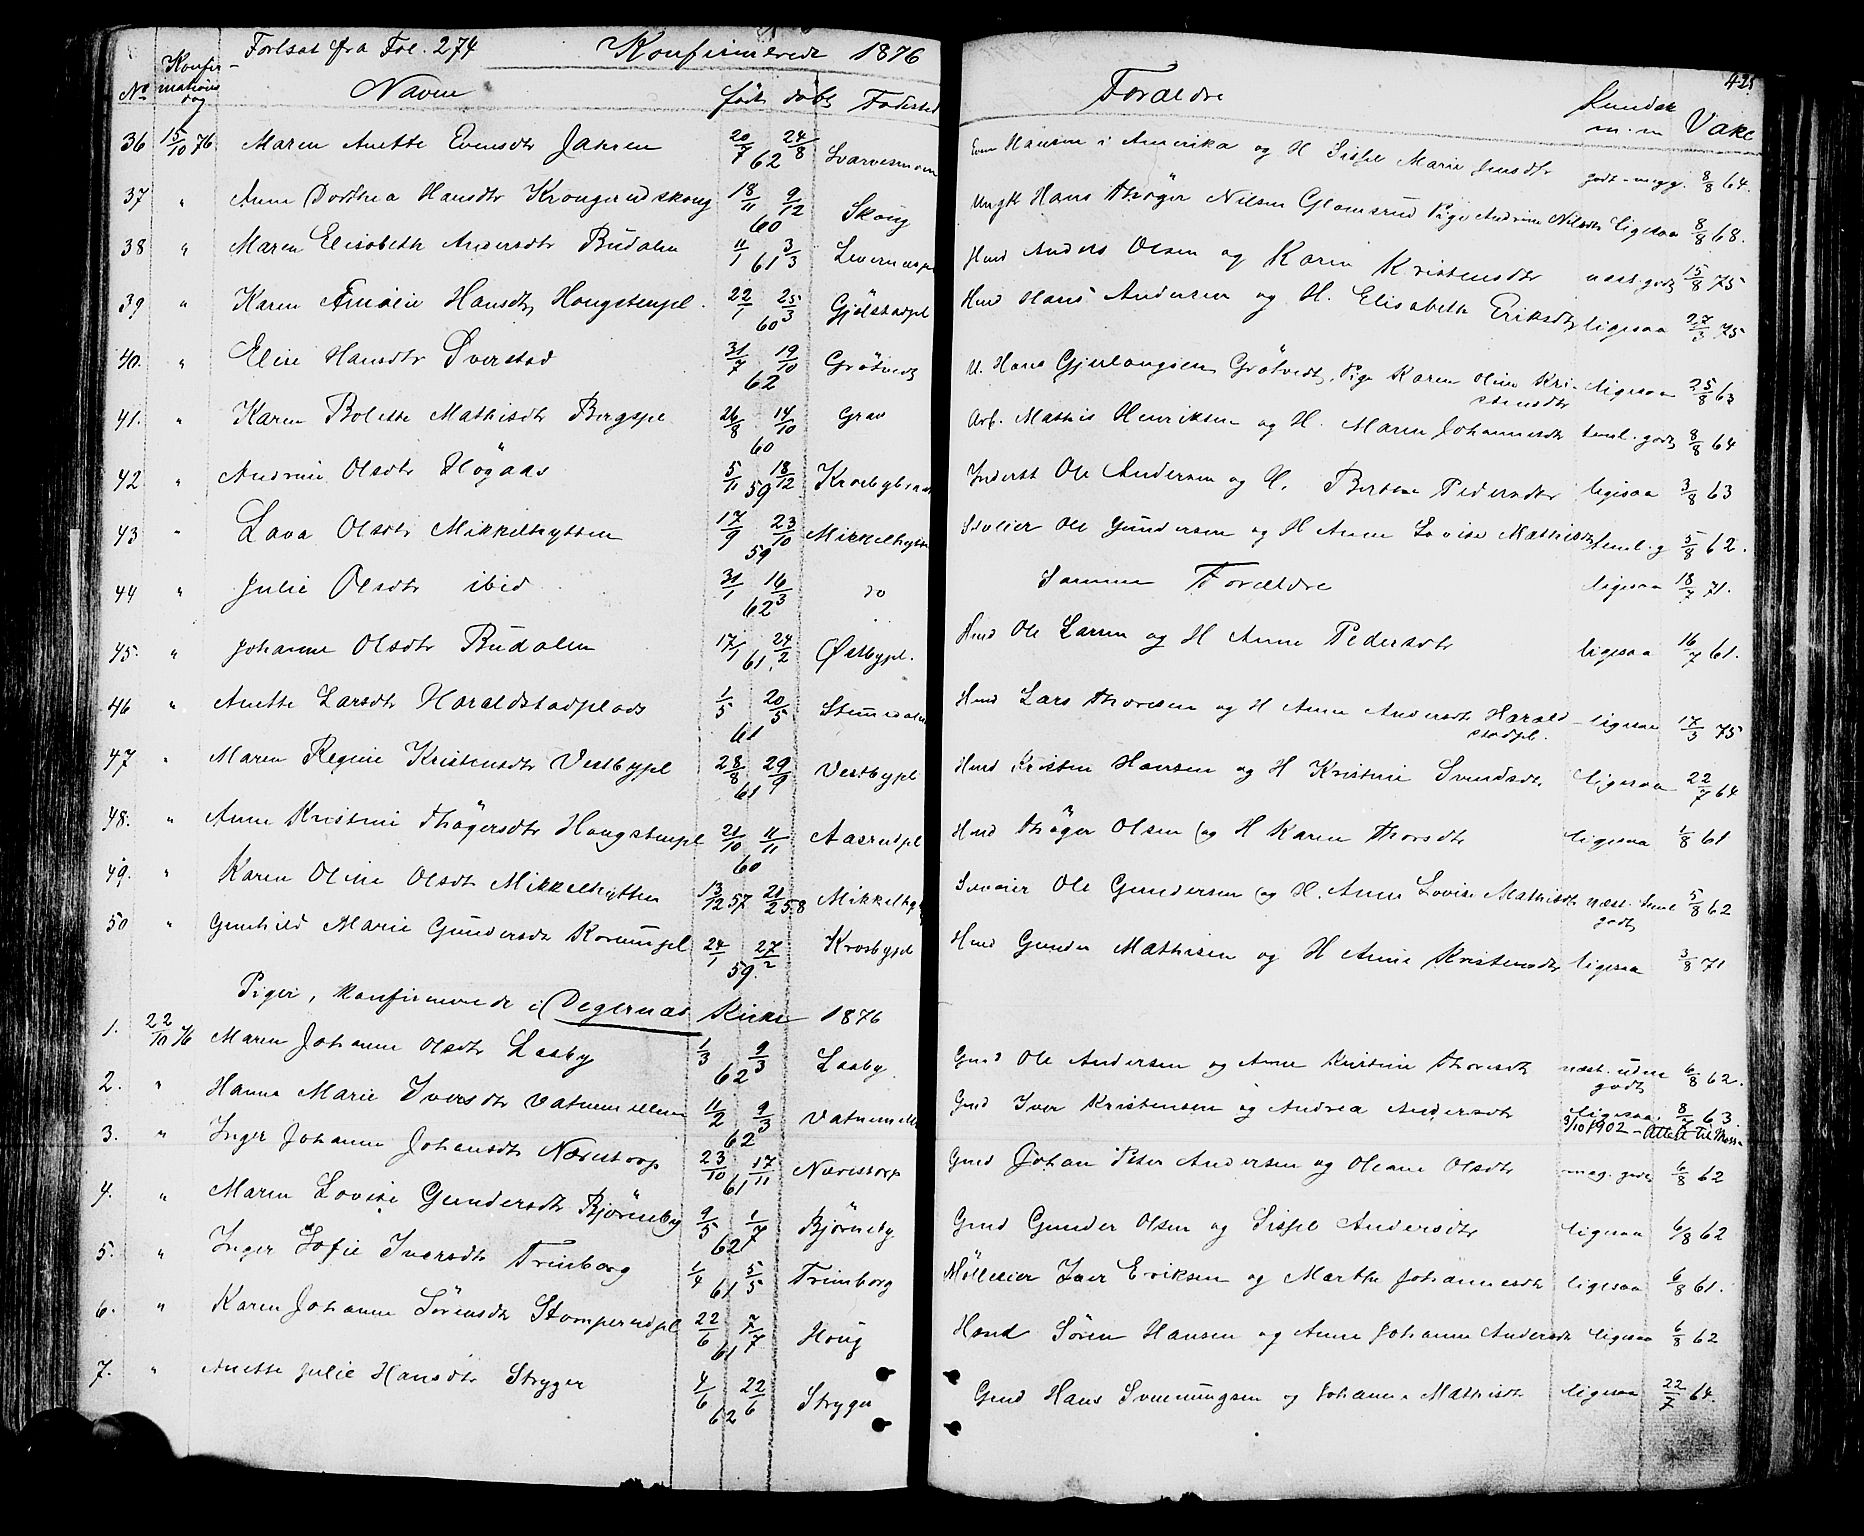 Fortsat fra Fol. 274 Konfirmerede 1876
425
No Konfirmations dag Navne født døbt Fødested Forældre Kundsk m.m Vakc
36 15/10 76 Maren Anette Evensdtr Jahren 20/7 24/8 62 Even Hansen i Amerika og H Sispl Marie Jensdtr godt-megg. 8/8 64.
37 " Anne Dorthea Hansdtr Krongerudskoug 18/11 9/12 60 Skoug Ungk Hans Thøger Nilsen Glomsrud Pige Andrine Nilsdtr ligesaa 8/8 68.
38 " Maren Elisabeth Andersdtr Budalen 11/1 3/3 61 Hmd Anders Olsen og Karen Kristensdtr næst.godt 15/8 75
39 " Karen Amalie Hansdtr Hougstenpl. 22/1 25/3 60 Gjølstadpl Hmd Hans Andersen og H. Elisabeth Eriksdtr ligesaa 27/3 75
40. " Elise Hansdtr Sverstad 31/7 19/10 62 Grøtvedt U. Hans Gjerlaugsen Grøtvedt, Pige Karen Oline Kri-
stensdtr ligesaa 25/8 63
41. " Karen Bolette Mathisdtr Bergspl 26/8 14/10 60 Grav Arb. Mathis Henriksen og H. Maren Johannesdtr teml.godt 8/8 64
42 " Andrine Olsdtr Høgaas 5/11 18/12 59 Inderst Ole Andersen og H. Bertine Pedersdtr ligesaa 3/8 63
43 " Lava Olsdtr Mikkelhytten 17/9 23/10 59 Mikkelhytt Selveier Ole Gundersen og H Anne Lovise Mathisdtr teml. g 5/8 62.
44 " Julie Olsdtr ibid 31/1 16/3 62 do Samme Forældre ligesaa 18/7 71.
45. " Johanne Olsdtr Budalen 17/1 24/2 61. Østbypl. Hmd Ole Larsen og H Anne Pedersdtr ligesaa 16/7 61.
46 " Anette Larsdtr Haraldstadplads 1/5 20/5 61 Hmd Lars Thoresen og H Anne Andersdtr Harald-
stadpl. ligesaa 17/5 75
47 " Maren Regine Kristensdtr Vestbypl 28/8 29/9 61 Vestbypl Hmd Kristen Hansen og H Kristine Svendsdtr ligesaa 22/7 64
48. " Anne Kristine Thøgersdtr Hougstenpl 21/10 11/11 60 Aasrudpl Hmd Thøger Olsen og H Karen Thorsdtr ligesaa 1/8 61
49. " Karen Oline Olsdtr Mikkelhytten 13/12 57 21/2 58 Mikkelhy Selveier Ole Gundersen og H. Anne Lovise Mathisdtr næst. teml
godt 5/8 62
50 " Gunhild Marie Gundersdtr 24/1 27/2 59. Krosbypl Hmd Gunder Mathisen og H Anne Kristensdtr ligesaa 3/8 71
Piger, konfirmerede i Degernæs Kirke 1876
1. 22/10 76 Maren Johanne Olsdtr Laaby 1/3 9/3 62 Laaby Gmd Ole Andersen og Anne Kristine Thoresdtr næst. uden
godt 6/8 62.
2. " Hanna Marie Iversdtr Vatnemellem 11/2 9/3 62 Vatnemell Gmd Iver Kristensen og Andrea Andersdtr ligesaa. 8/7 63.
9/10 1902 - Attest til Moss-
3. " Inger Johanne Johansdtr Næristorp 23/10 17/11 61 Næristorp Gmd Johan Peter Andersen og Oleane Olsdtr meg. godt 6/8 62
4. " Maren Lovise Gundersdtr Bjørneby 9/5 1/7 62 Bjørneby Gmd Gunder Olsen og Sispl Andersdtr ligesaa 6/8 62
5. " Inger Sofie Iversdtr Trimborg 1/4 5/5 61 Trimborg Mølleeier Iver Eriksen og Marthe Johannesdtr ligesaa 6/8 61.
6. " Karen Johanne Sørensdtr Stomperudpl 22/6 7/7 61 Houg Hmd Søren Hansen og Anne Johanne Andersdtr ligesaa 6/8 62
7. " Anette Julie Hansdtr Stryger 4/6 22/6 62 Stryger Gmd Hans Svenningsen og Johanne Mathisdtr ligesaa 22/7 64.